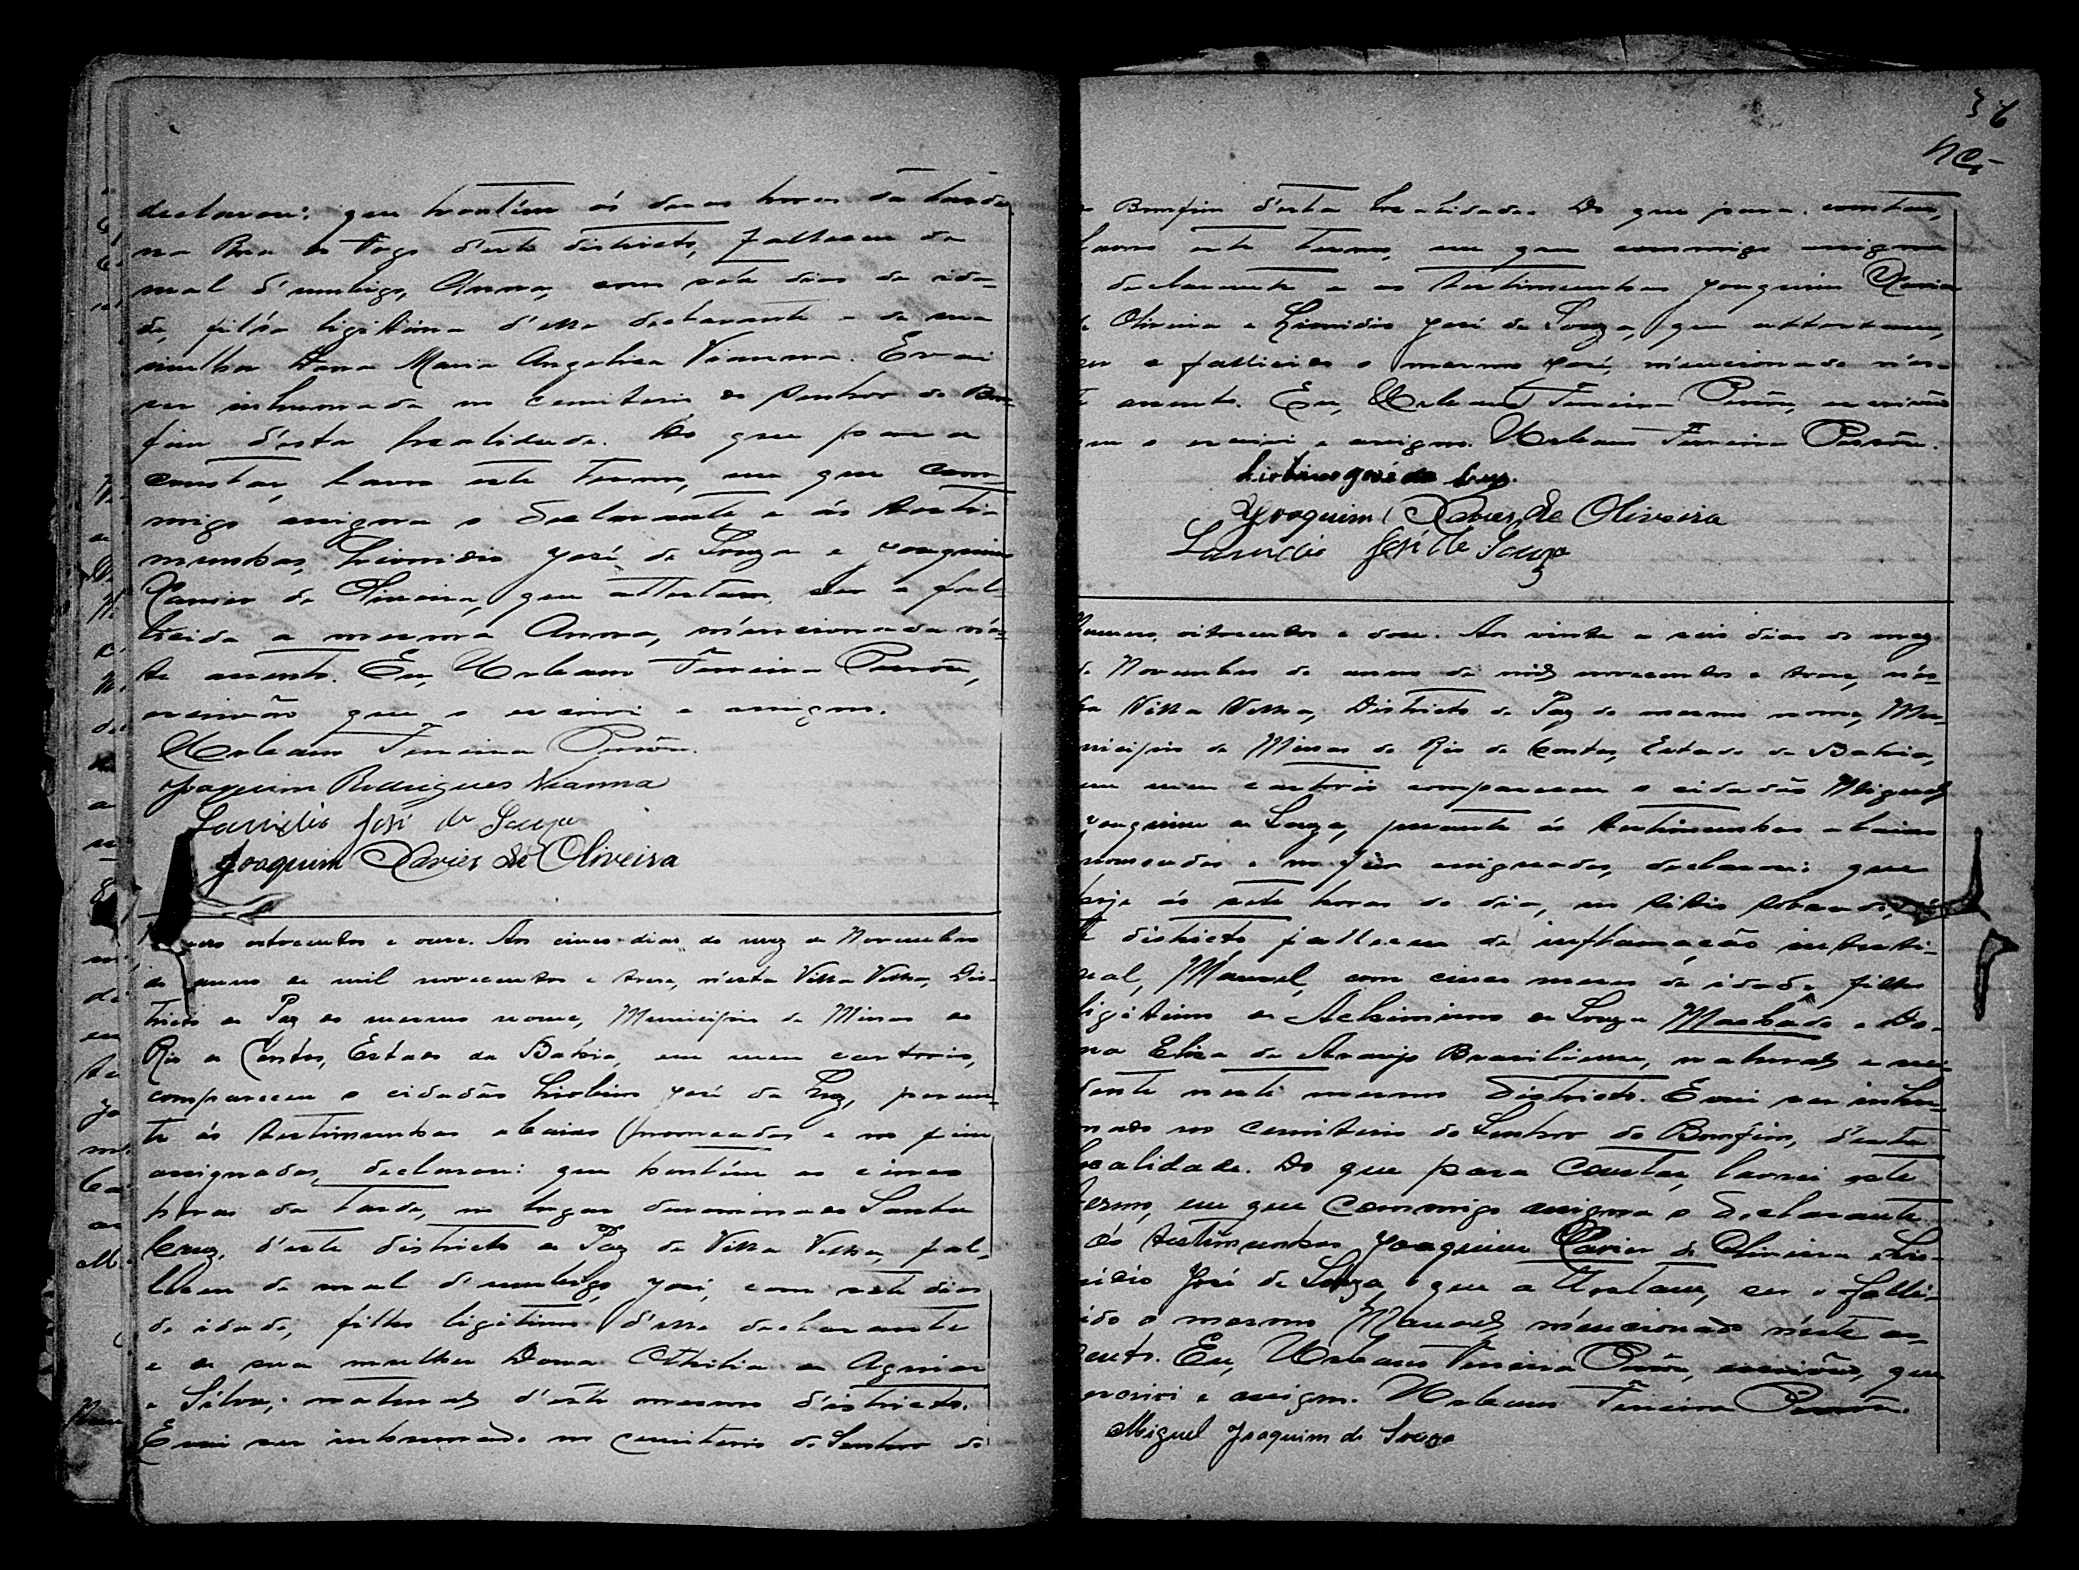 declarou: que hontem ás duas horas da tarde
na Boa do Vogo d'este districto, falleceu de
mal d'umbigo, Anna, com sete dias de ida-
de, filha ligitima d'esse declarante e de sua
mulher Dona Maria Angelica Vianna. E vai
ser inhumada no Cemiterio do Senhor do Bom
fim d'esta localidade. Do que para
constar, lavro este termo, em que com-
migo assigna o declarante e ás teste-
munhas, José de Souza e Joaquim
Xavier de Oliveira, que attestam, ser a fal-
lecida a mesma Anna, mencionada nés-
te assento. Eu, Ferreira
escrivão que o escrevi e assigno.
Ferreira
Joaquim Rodrigues Vianna
José de Souza
Joaquim Xavier de Oliveira
oitocentos e onze. Aos cinco dias do mez de Novembro
do anno de mil novecentos e treze, n'esta Villa Velha, Dis-
tricto de Paz do mesmo nome, Municipio de Minas do
Rio de Contas, Estado da Bahia, em meu cartorio,
compareceu o cidadão José da Luz, peran-
te ás testimunhas abaixo nomeadas e no fim
assignadas, declarou: que hontem as cinco
horas da tarde, no lugar denominado Santa
Cruz, d'este districto de Paz de Villa Velha, fal-
leceu de mal d'umbigo, José, com sete dias
de idade, filho ligitimo d'esse declarante
e de sua mulher Dona Othilia de Aguiar
e Silva, natural d'este mesmo districto.
E vai ser inhumado no cemiterio do Senhor do
36
Bomfim d'esta localidade. Do que para constar,
lavro este termo, em que commigo assigna
declarante e as testimunhas Joaquim Xavier
de Oliveira e José de Souza, que attestam,
ser o fallecido o mesmo José, mencionado nes-
te assento. Eu, Ferreira escrivão
que o escrevi e assigno. Ferreira
José da Luz.
Joaquim Xavier de Oliveira
José de Souza
Numero, oitocentos e doze. Aos vinte e seis dias do mez
de Novembro do anno de mil novecentos e treze, nés-
ta Villa Velha, Districto de Paz do mesmo nome, Mu-
nicipio de Minas do Rio de Contas, Estado da Bahia,
em meu cartorio compareceu o cidadão Miguel
Joaquim de Souza, perante ás testimunhas abaixo
nomeadas e no fim assignadas, declarou: que
hoje ás sete horas do dia, no sitio
districto falleceu de inflamação intesti-
nal, Manoel, com cinco mezes de idade, filho
ligitimo de de Souza Machado e Do-
na Elisa de Araujo Brasiliense, natural e resi-
dente neste mesmo districto. E vai ser inhu-
mado no cemiterio do Senhor do Bomfim, d'esta
localidade. Do que para constar, lavrei este
termo, em que commigo assigna o declarante
ás testimunhas Joaquim Xavier de Oliveira e
José de Souza, que attestam, ser o falle-
cido o mesmo Manoel, mencionado néste as-
sento. Eu, Ferreira escrivão, que
escrevi e assigno. Ferreira
Miguel Joaquim de Souza